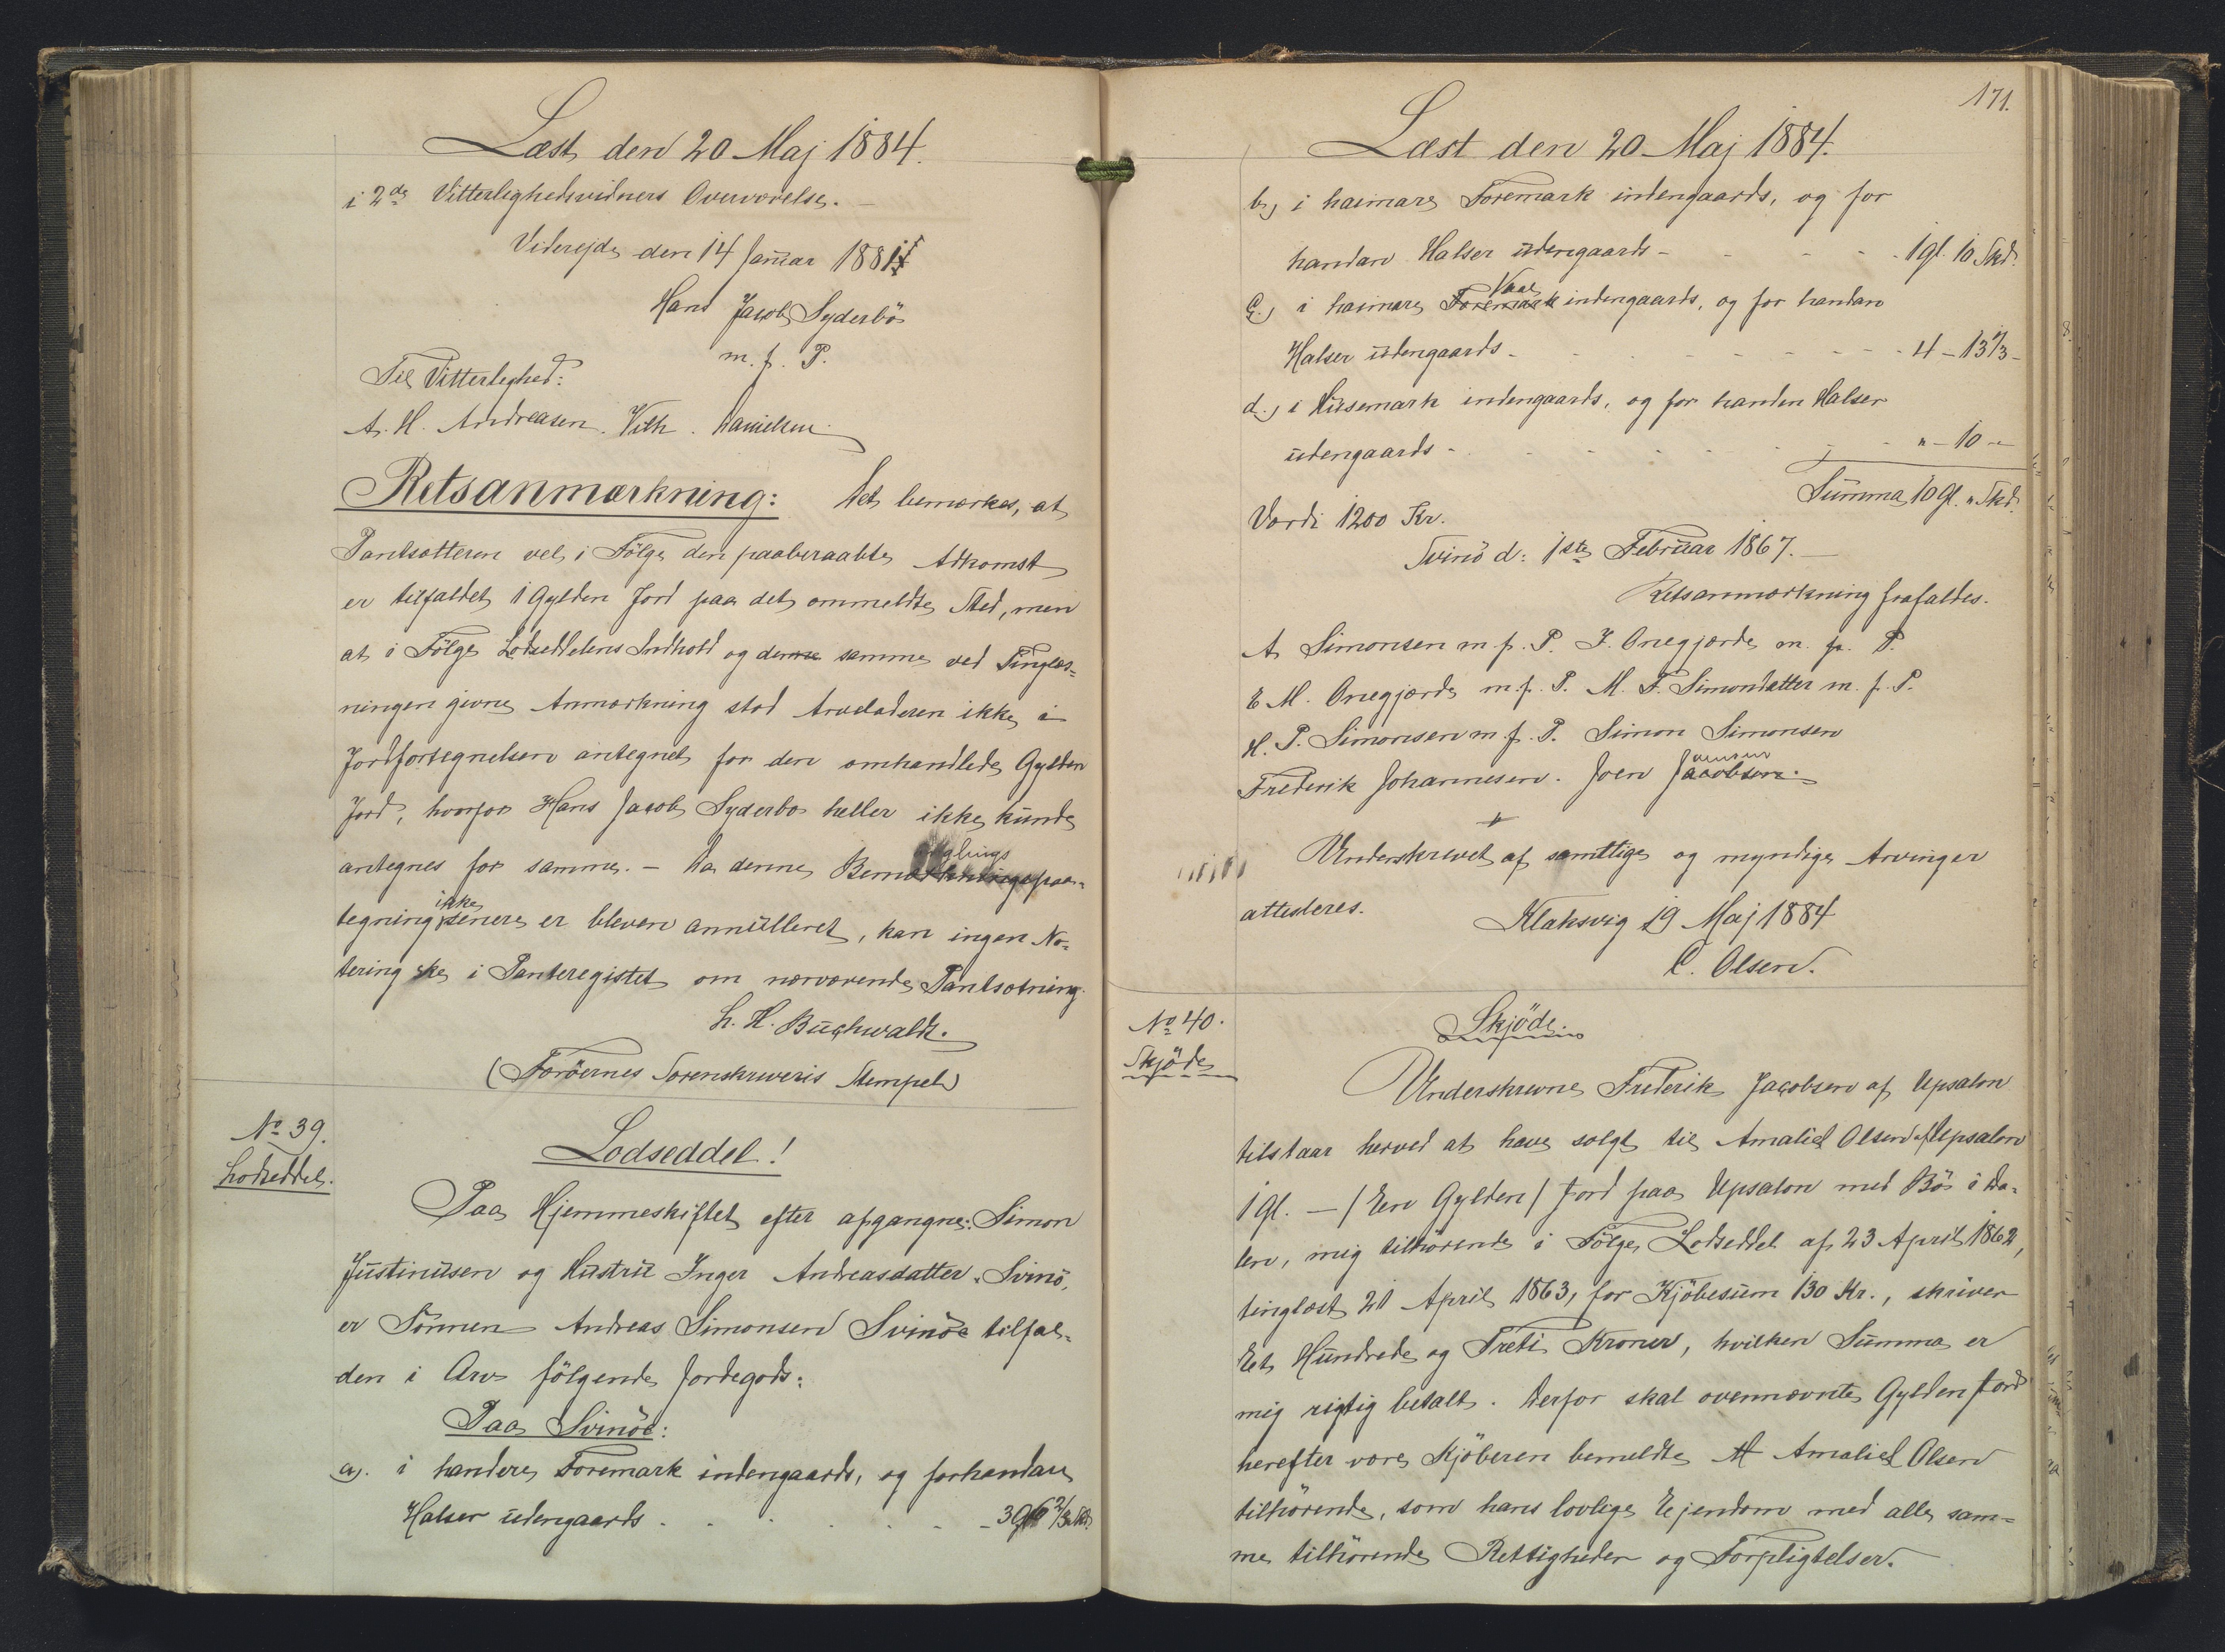 Læst den 20 Maj 1884.
i 2de Vitterlighedsvidners Overværelse. —
Viderejde den 14 Januar 1881
Hans Jacob Syderbö
m. f. P.
Til Vitterlighed:
A. H. Andreasen. Vilh. Danielsen.
Retsanmærkning: Det bemærkes, at
Pantsætteren vel i Fölge den paaberaabte Adkomst
er tilfaldet 1 Gylden Jord paa det ommeldte Sted, men
at i Fölge Lodseddelens Indhold og denne samme ved Tinglæs-
ningen givne Anmærkning stod Arveladeren ikke i
Jordfortegnelsen antegnet for den omhandlede Gylden
Jord, hvorfor Hans Jacob Syderbö heller ikke kunde
antegnes for samme. — Da denne paa-
tegning ikke senere er bleven annülleret, kan ingen No-
tering ske i Panteregistet om nærværende Pantsætning.
L. H. Buchwaldt.
(Færöernes Sorenskriveris Stempel)
No 39.
Lodseddel.
Lodseddel!
Paa Hjemmeskiftet efter afgangne: Simon
Justinusen og Hustru Inger Andreasdatter, Svinö,
er Sönnen Andreas Simonsen Svinöe tilfal-
den i Arv fölgende Jordegods:
Paa Svinöe:
a). i handere Foremark indengaards, og forhandan
Halser udengaards 3 Gl 6 2/3 Skd.
171.
Læst den 20 Maj 1884.
b, i haimare Foremark indengaards, og for
handan Halser udengaards - 1 gl. 10 Skd.
c., i haimare Foremark Vaae indengaards, og for handan
Halser udengaards - 4 - 13 1/3 -
d., i Husemark indengaards, og for handen Halser
udengaards - " - 10 -
Summa 10 Gl. " Skd.
Værdi 1200 Kr.
Svinö d: 1ste Februar 1867. —
Retsanmærkning frafaldes.
A Simonsen m. f. P. J. Ønegjærde m. f. P.
E M. Ønegjærde m. f. P. M. F. Simondatter m. f. P.
H. P. Simonsen m. f. P. Simon Simonsen
Frederik Johannesen. Joen Jacobsen Joensen.
Underskrevet af samtlige og myndige Arvinger
attesteres.
Klaksvig 19 Maj 1884
C. Olsen.
No 40.
Skjöde
Skjöde.
Underskrevne Frederik Jacobsen af Upsalon
tilstaar herved at have solgt til Amaliel Olsen af Upsalon
1 gl. — / Een Gylden / Jord paa Upsalon med Bö i Da-
len, mig tilhörende i Fölge Lodseddel af 23 April 1862,
tinglæst 21 April 1863, for Kjöbesum 130 Kr., skriver
Et Hundrede og Treti Kroner, hvilken Summa er
mig rigtig betalt. Derfor skal ovennævnte Gylden Jord
herefter være Kjöberen bemeldte Amaliel Olsen
tilhörende, som hans lovlige Ejendom med alle sam-
me tilhörende Rettigheder og Forpligtelser.